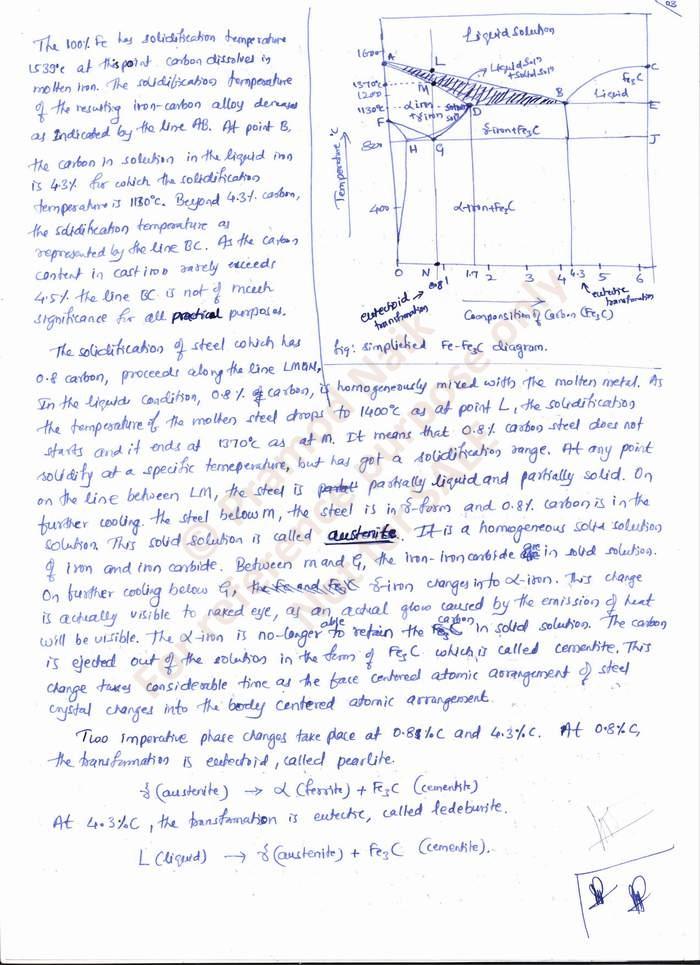 03
The 100% Fe has solidification temperature
1539°c at this point carbon dissolves in
molten iron. The solidification temperature
of the resulting iron-carbon alloy decreases
as indicated by the line AB. At point B,
the carbon in solution in the liquid iron
is 4.3% for which the solidification
temperature is 1130°c. Beyond 4.3% carbon,
the solidification temperature as
represented by the line BC. As the carbon
content in cast iron rarely exceeds
4.5% the line BC is not of much
significance for all practical purposes.
Liquid solution
1600
A
L
Liquid Soln
+ solid soln
C
1370°c
M
Fe3C
1200
Liquid
1130°c
α iron
+ γ iron
solid
soln
D
B
E
F
γ-iron+Fe3C
800
H
G
J
Temperature °c
400
α-iron+Fe3C
0
N
0.8
1
1.7
2
3
4
4.3
5
6
eutectoid
transformation
eutectic
transformation
Composition of Carbon (Fe3C)
fig: simplified Fe-Fe3C diagram.
The solidification of steel which has
0.8 carbon, proceeds along the line LMGN.
In the liquide condition, 0.8% of carbon, is homogeneously mixed with the molten metal. As
the temperature of the molten steel drops to 1400°c as at point L, the solidification
starts and it ends at 1370°c as at M. It means that 0.8% carbon steel does not
solidify at a specific temeperature, but has got a solidification range. At any point
on the line between LM, the steel is partially liquid and partially solid. On
further cooling. the steel below M, the steel is in γ-form and 0.8% carbon is in the
solution. This solid solution is called austenite. It is a homogeneous solid solution
of iron and iron carbide. Between M and G, the iron-iron carbide in solid solution.
On further cooling below G, the Fe and Fe3C γ-iron changes into α-iron. This change
is actually visible to naked eye, as an actual glow caused by the emission of heat
will be visible. The α-iron is no-longer able to retain the carbon in solid solution. The carbon
is ejected out of the solution in the form of Fe3C which is called cementite. This
change takes considerable time as the face centered atomic arrangement of steel
crystal changes into the body centered atomic arrangement.
Two imperative phase changes take place at 0.8%C and 4.3%C. At 0.8%C,
the transformation is eutectoid, called pearlite.
γ (austenite) → α (ferrite) + Fe3C (cementite)
At 4.3%C, the transformation is eutectic, called ledeburite.
L (liquid) → γ (austenite) + Fe3C (cementite).
© Pramod Naik
For reference purpose only
Not for SALE